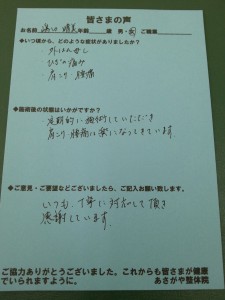 皆さまの声
お名前 年齢 歳 男・女 ご職業
◆いつ頃から、どのような症状がありましたか?
外はんぼし
ひざの痛み
肩こり・腰痛
◆施術後の状態はいかがですか?
定期的に施術していただき
肩こり、腰痛も楽になってきています。
◆ご意見・ご要望などございましたら、ご記入お願い致します。
いつも、丁寧に対応して頂き
感謝しています。
ご協力ありがとうございました。これからも皆さまが健康
でいられますように。 あさがや整体院